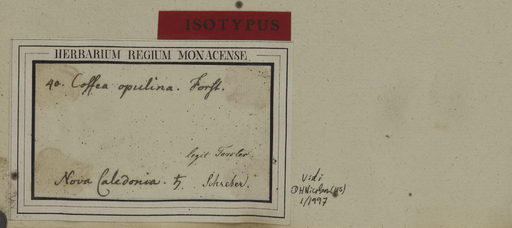 ISOTYPUS
HERBARIUM REGIUM MONACENSE
40. Coffea opulina. Forst.
legit Forster
Nova Caledonia. ♄ Schreber.
Vidi
DHNicolson (US)
1/1997